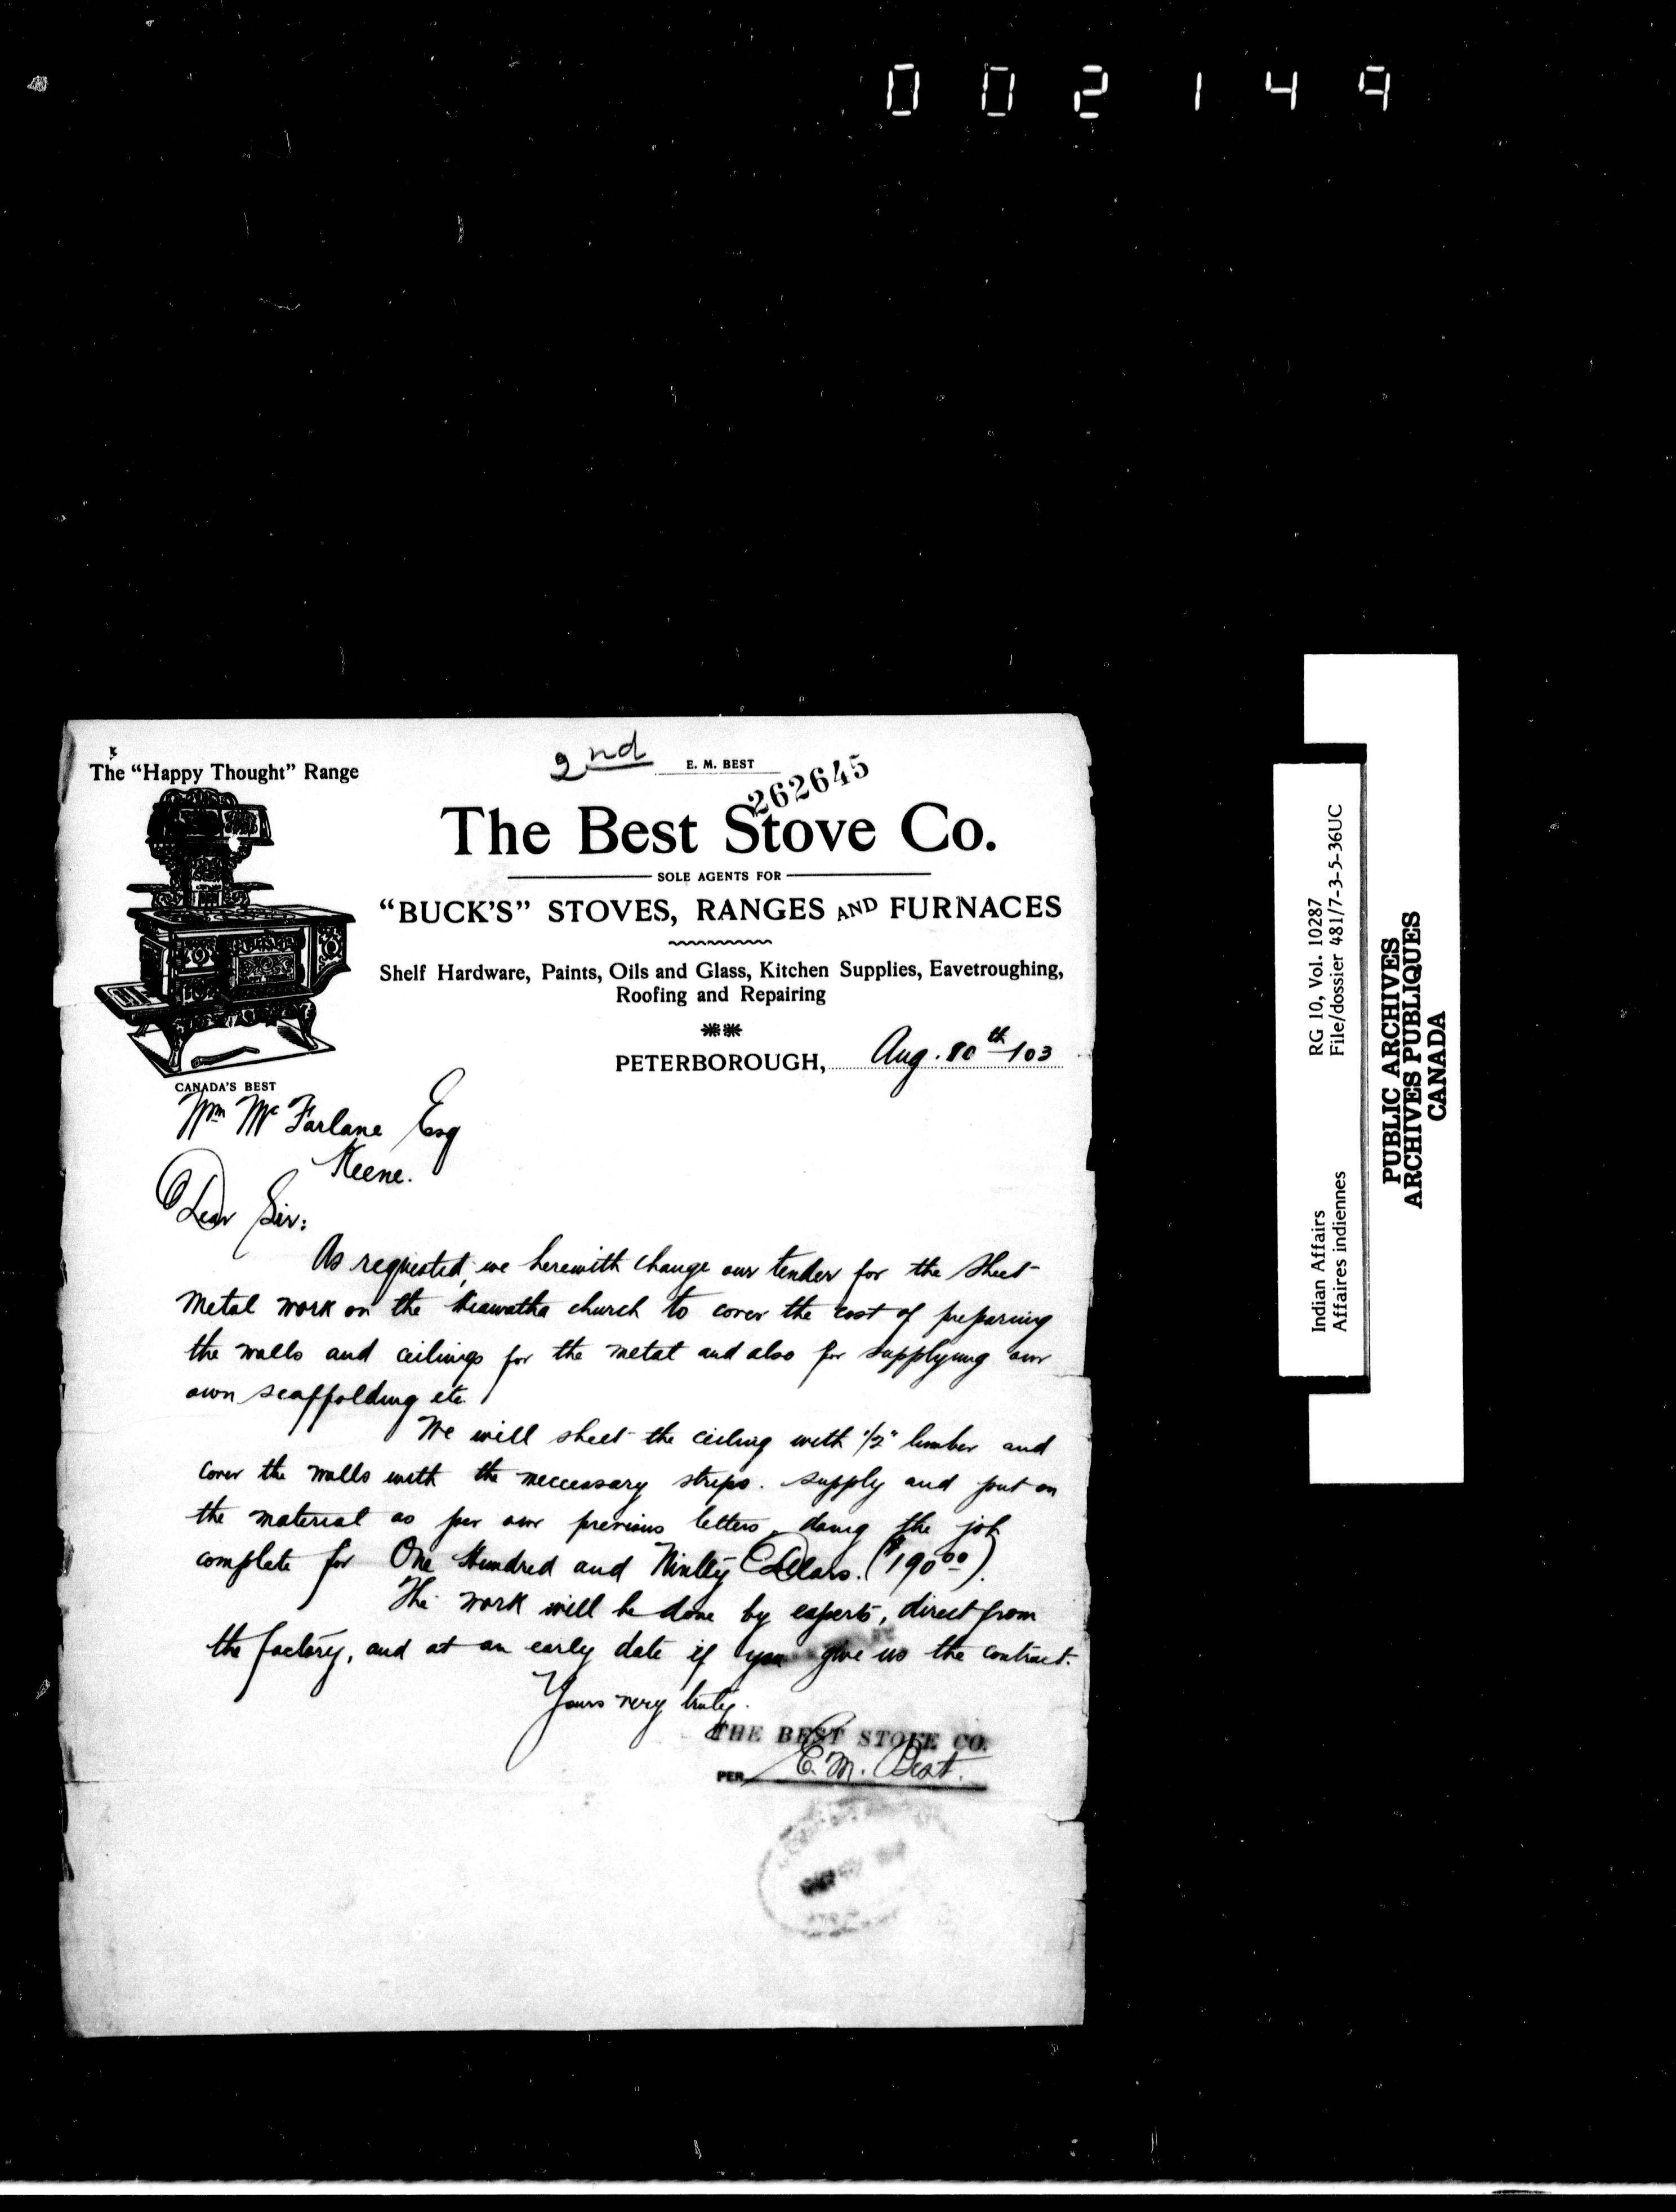 002149
The "Happy Thought" Range
2nd
E. M. BEST
262645
The Best Stove Co.
SOLE AGENTS FOR
"BUCK'S" STOVES, RANGES AND FURNACES
Shelf Hardware, Paints, Oils and Glass, Kitchen Supplies, Eavetroughing,
Roofing and Repairing
PETERBOROUGH, Aug.
CANADA'S BEST
Wm McFarlane Esq
Keene.
Dear Sir:
As requested, we herewith change our tender for the sheet
metal work on the Hiawatha church to cover the cost of preparing
the walls and ceilings for the metal and also for supplying our
own scaffolding etc.
We will sheet the ceiling with 1/2" lumber and
cover the walls with the neccessary strips. supply and put on
the material as per our previous letters, doing the job
complete for One Hundred and Ninety Dollars. ($190 00).
The work will be done by experts, direct from
the factory, and at an early date if you give us the contract.
Yours very truly.
THE BEST STOVE CO.
PER E. M. Best.
Indian Affairs
Affaires indiennes
RG 10, Vol. 10287
File/dossier 481/7-3-5-36UC
PUBLIC ARCHIVES
ARCHIVES PUBLIQUES
CANADA